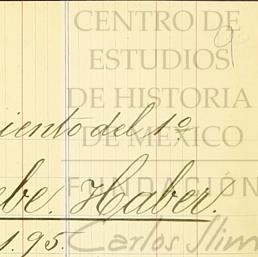 CENTRO DE
ESTUDIOS
DE HISTORIA
iento del 1º
DE MÉXICO
ebe. Haber.
FUNDACIÓN
1.95.
Carlos Slim